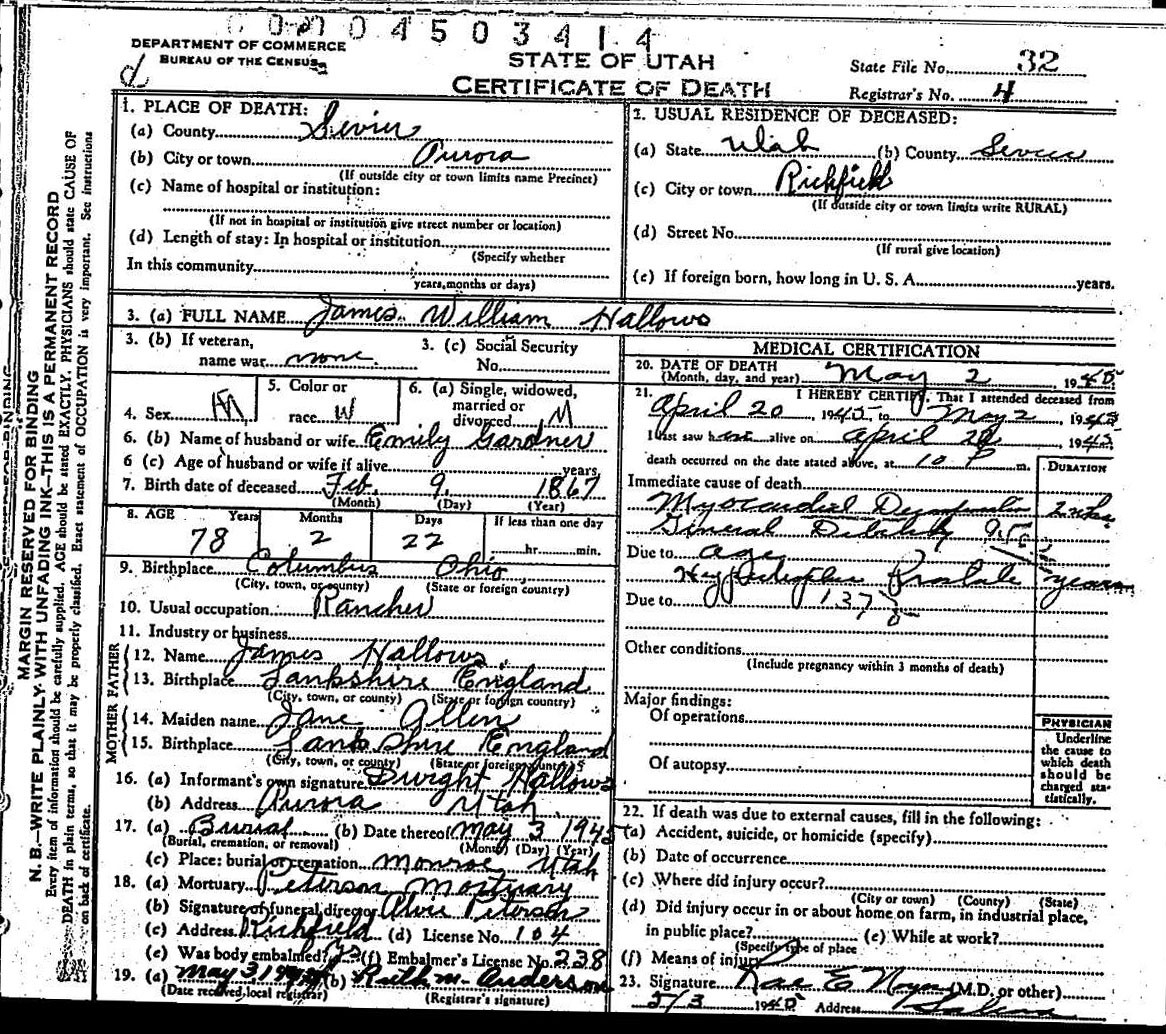 0 4 5 0 3 4 1 4
DEPARTMENT OF COMMERCE
BUREAU OF THE CENSUS
STATE OF UTAH
CERTIFICATE OF DEATH
State File No. 32
Registrar's No. 4
MARGIN RESERVED FOR BINDING
N. B.—WRITE PLAINLY WITH UNFADING INK—THIS IS A PERMANENT RECORD
Every item of information should be carefully supplied. AGE should be stated EXACTLY. PHYSICIANS should state CAUSE OF
DEATH in plain terms, so that it may be properly classified. Exact statement of OCCUPATION is very important. See instructions
on back of certificate.
1. PLACE OF DEATH:
(a) County Sevier
(b) City or town Aurora
(If outside city or town limits name Precinct)
(c) Name of hospital or institution:
(If not in hospital or institution give street number or location)
(d) Length of stay: In hospital or institution
(Specify whether
In this community
years, months or days)
2. USUAL RESIDENCE OF DECEASED:
(a) State Utah (b) County Sevier
(c) City or town Richfield
(If outside city or town limits write RURAL)
(d) Street No.
(If rural give location)
(e) If foreign born, how long in U. S. A. years.
3. (a) FULL NAME James William Hallows
3. (b) If veteran,
name war none
3. (c) Social Security
No.
4. Sex M
5. Color or
race W
6. (a) Single, widowed,
married or
divorced M
6. (b) Name of husband or wife Emily Gardner
6 (c) Age of husband or wife if alive years
7. Birth date of deceased Feb. 9, 1867
(Month) (Day) (Year)
8. AGE Years Months Days If less than one day
78 2 22 hr. min.
9. Birthplace Columbus Ohio
(City, town, or county) (State or foreign country)
10. Usual occupation Rancher
11. Industry or business
FATHER
12. Name James Hallows
13. Birthplace Lankshire England
(City, town, or county) (State or foreign country)
MOTHER
14. Maiden name Jane Allen
15. Birthplace Lankshire England
(City, town, or county) (State or foreign country)
16. (a) Informant's own signature Dwight Hallows
(b) Address Aurora Utah
17. (a) Burial (b) Date thereof May 3 1945
(Burial, cremation, or removal) (Month) (Day) (Year)
(c) Place: burial or cremation Monroe Utah
18. (a) Mortuary Peterson Mortuary
(b) Signature of funeral director Alvie Peterson
(c) Address Richfield (d) License No. 104
(e) Was body embalmed? Yes (f) Embalmer's License No. 238
19. (a) May 3 1945 (b) Ruth M. Anderson
(Date received local registrar) (Registrar's signature)
MEDICAL CERTIFICATION
20. DATE OF DEATH
(Month, day, and year) May 2, 1945
21. I HEREBY CERTIFY, That I attended deceased from
April 20, 1945 to May 2, 1945
I last saw him alive on April 1945
death occurred on the date stated above, at 10 P m.
DURATION
Immediate cause of death
Myocardial
General Debility
Due to age
years
Due to 137
Other conditions
(Include pregnancy within 3 months of death)
Major findings:
Of operations
Of autopsy
PHYSICIAN
Underline
the cause to
which death
should be
charged sta-
tistically.
22. If death was due to external causes, fill in the following:
(a) Accident, suicide, or homicide (specify)
(b) Date of occurrence
(c) Where did injury occur?
(City or town) (County) (State)
(d) Did injury occur in or about home on farm, in industrial place,
in public place? (e) While at work?
(Specify type of place
(f) Means of injury
23. Signature Rae E Noyes (M.D. or other)
5/3 1945 Address Salina